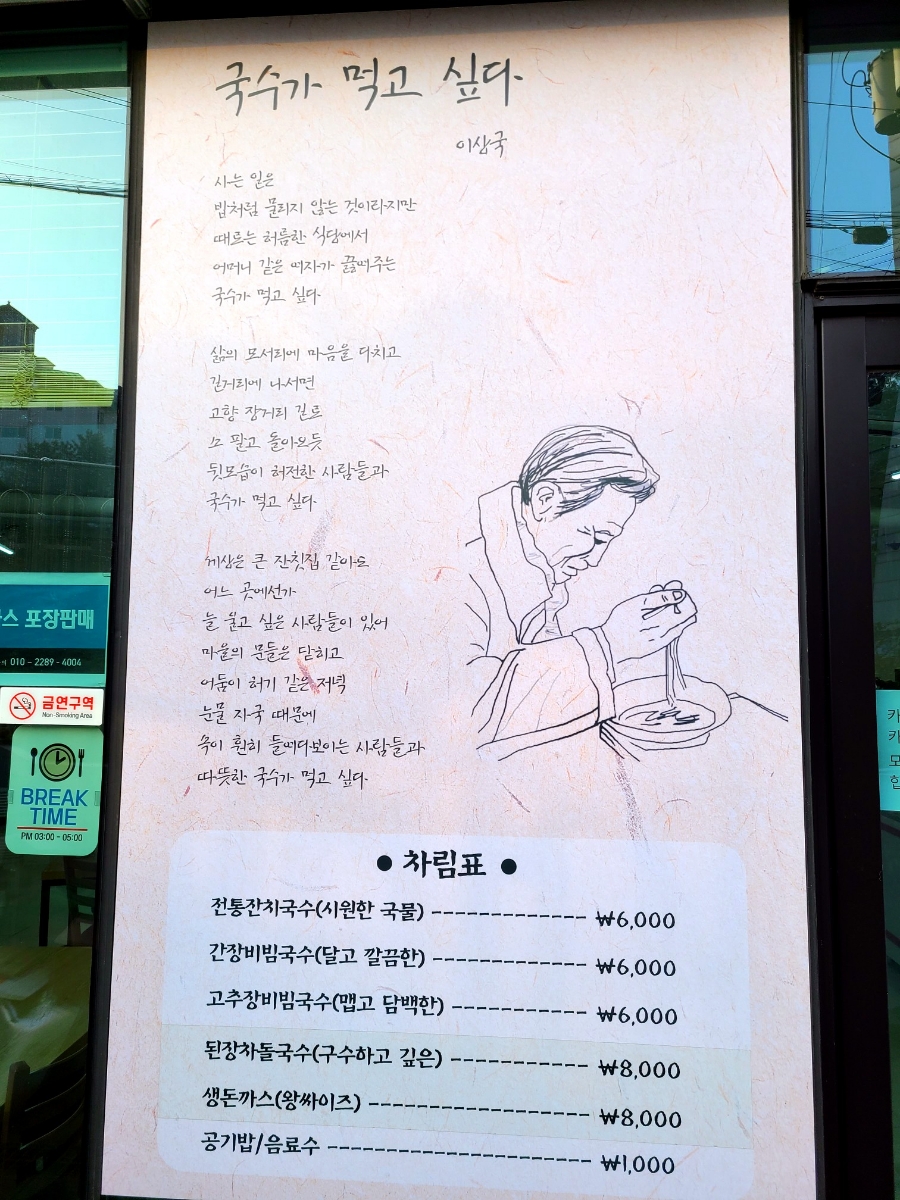 국수가 먹고 싶다
이상국
사는 일은
밥처럼 물리지 않는 것이라지만
때로는 허름한 식당에서
어머니 같은 여자가 끓여주는
국수가 먹고 싶다
삶의 모서리에 마음을 다치고
길거리에 나서면
고향 장거리 길로
소 팔고 돌아오듯
뒷모습이 허전한 사람들과
국수가 먹고 싶다
세상은 큰 잔칫집 같아도
어느 곳에선가
늘 울고 싶은 사람들이 있어
마을의 문들은 닫히고
어둠이 허기 같은 저녁
눈물 자국 때문에
속이 훤히 들여다보이는 사람들과
따뜻한 국수가 먹고 싶다
스 포장판매
010 - 2289 - 4004
금연구역
Non-Smoking Area
BREAK
TIME
PM 03:00 - 05:00
● 차림표 ●
전통잔치국수(시원한 국물) ------------- ₩6,000
간장비빔국수(달고 깔끔한) ------------- ₩6,000
고추장비빔국수(맵고 담백한) ----------- ₩6,000
된장차돌국수(구수하고 깊은) ----------- ₩8,000
생돈까스(왕싸이즈) ------------------ ₩8,000
공기밥/음료수 ---------------------- ₩1,000
카
카
모
합